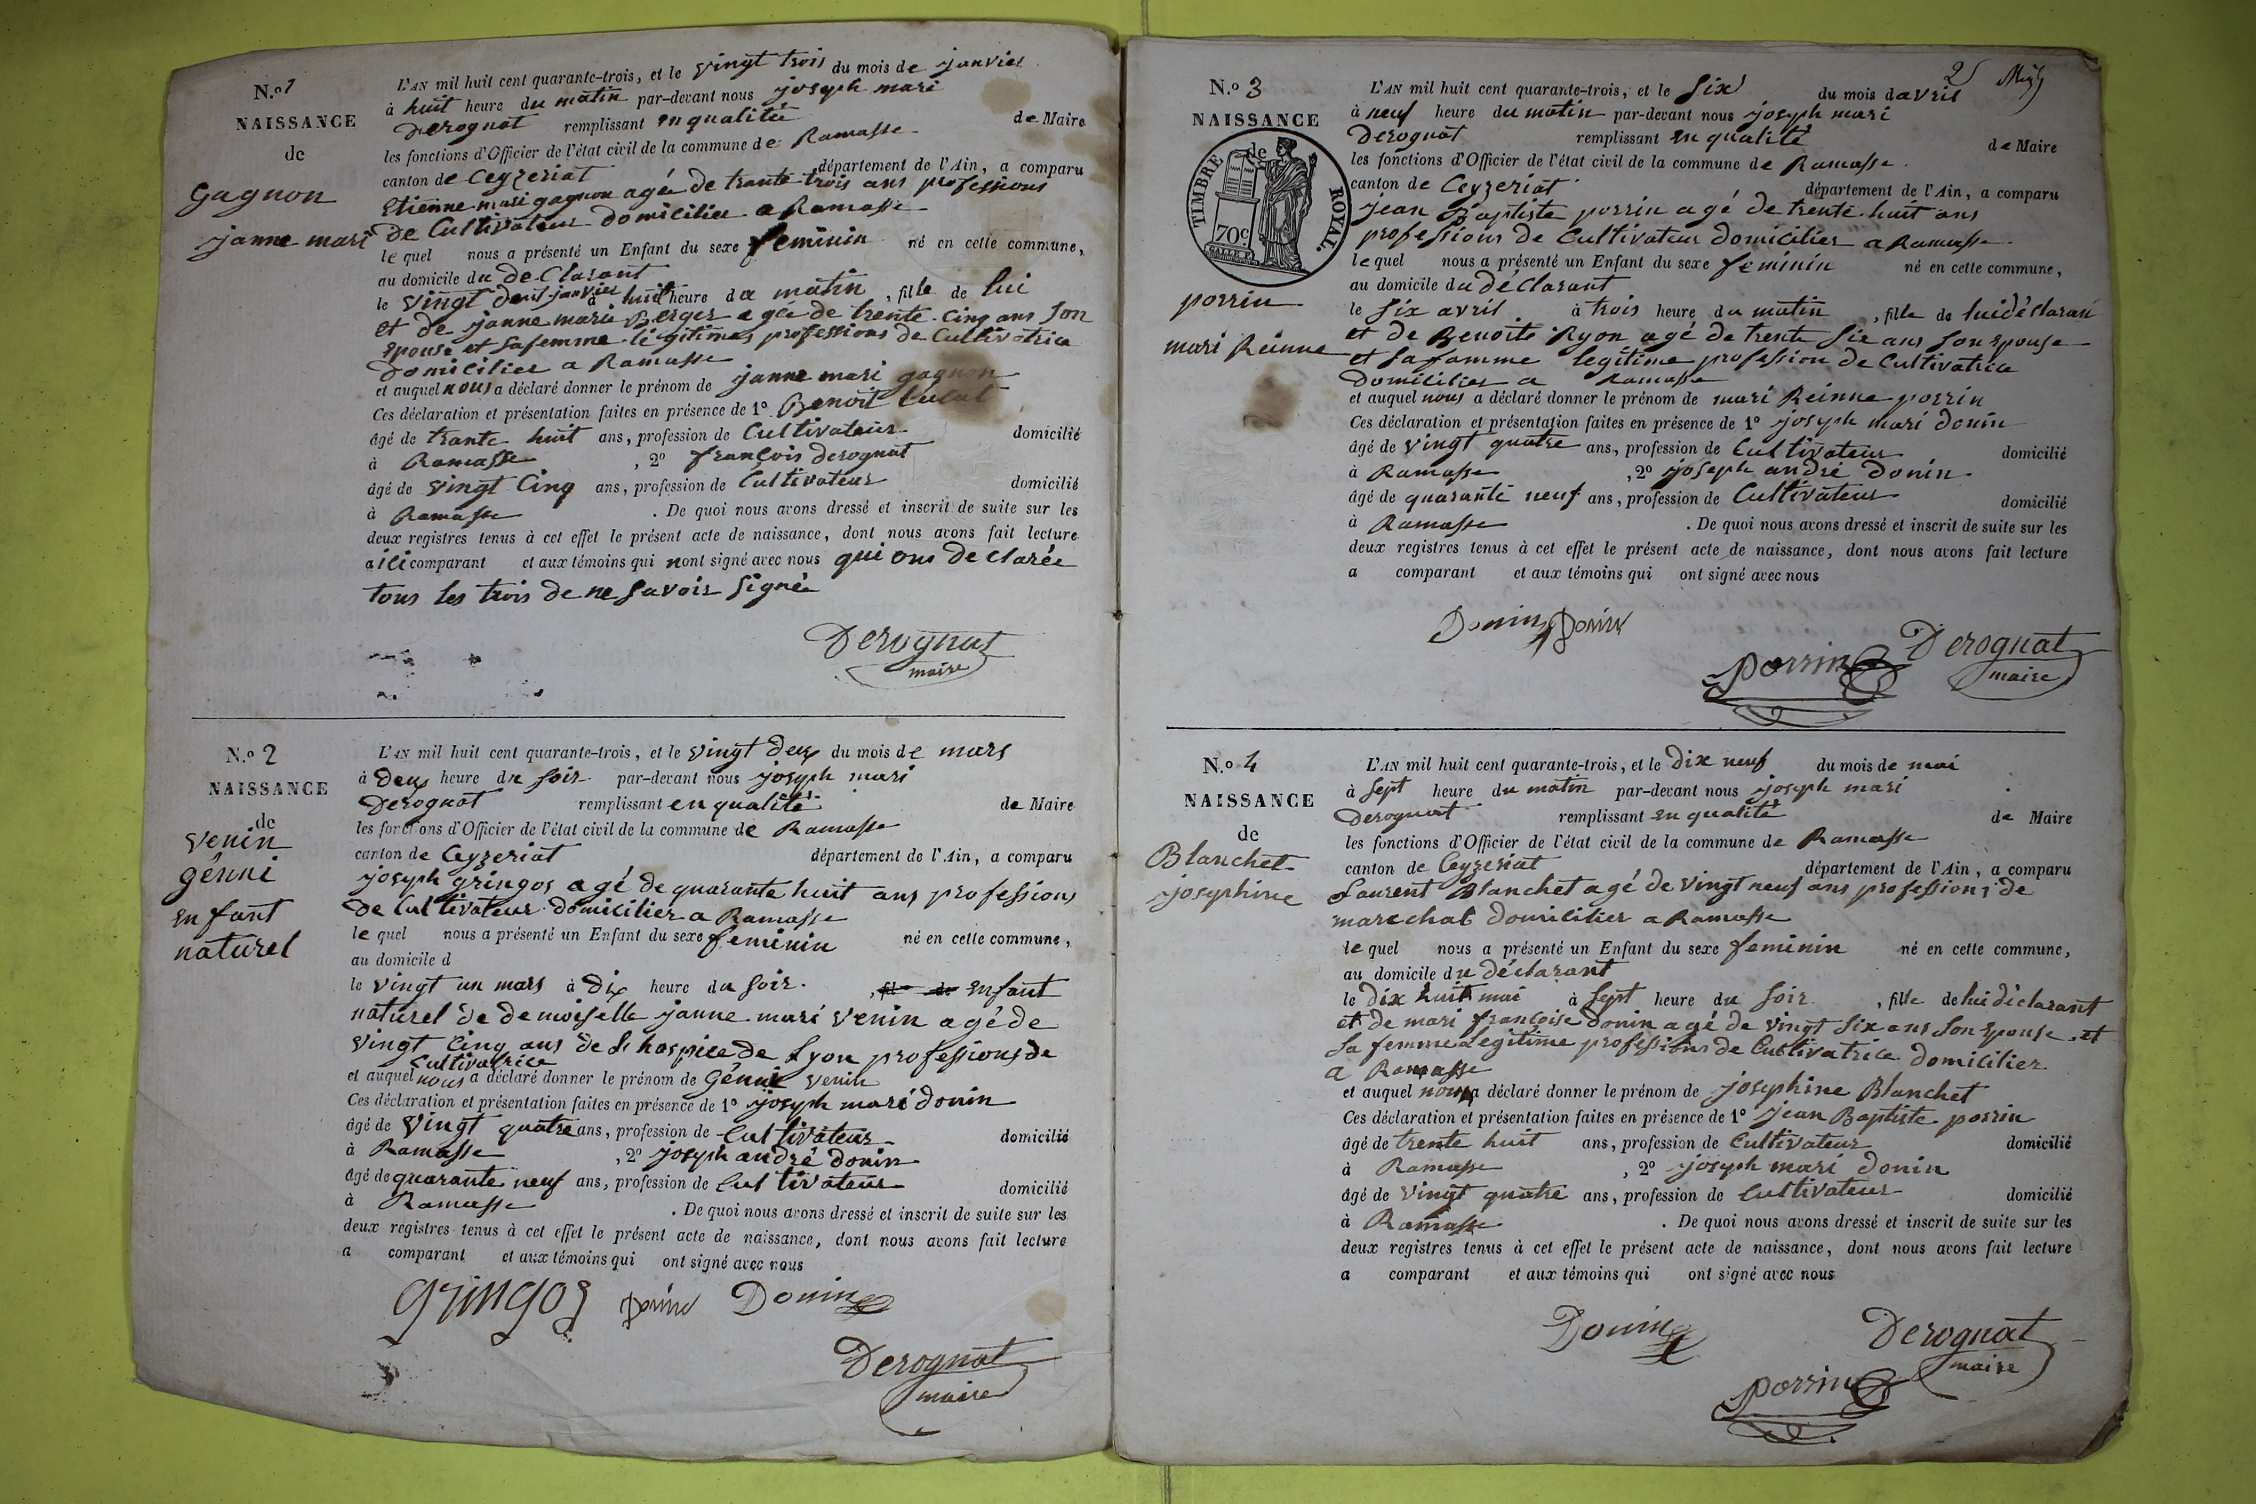 N.o 1
NAISSANCE
de
gagnon
janne mari
L'AN mil huit cent quarante-trois, et le vingt trois du mois de janvier
à huit heure du matin par-devant nous joseph mari
Derognat remplissant en qualitée de Maire
les fonctions d'Officier de l'état civil de la commune de Ramasse
canton de Ceyzeriat département de l'Ain, a comparu
Etienne mari gagnon agée de trante trois ans professions
de Cultivateur domicilier a Ramasse
le quel nous a présenté un Enfant du sexe feminin né en cette commune,
au domicile du de Clarant
le vingt deux janvier à huit heure du matin , fille de lui
et de janne marie Berger agée de trente Cinq ans Son
Epouse et Safemme legitimes professions de Cultivatrice
Domicilier a Ramasse
et auquel nous a déclaré donner le prénom de janne mari gagnon
Ces déclaration et présentation faites en présence de 1o Benoit
âgé de trante huit ans, profession de Cultivateur domicilié
à Ramasse , 2o françois derognat
âgé de vingt Cinq ans, profession de Cultivateur domicilié
à Ramasse . De quoi nous avons dressé et inscrit de suite sur les
deux registres tenus à cet effet le présent acte de naissance, dont nous avons fait lecture
a comparant et aux témoins qui nont signé avec nous qui ons de clarée
tous les trois de ne Savoir Signée
Derognat
maire
N.o 2
NAISSANCE
de
venin
génni
enfant
naturel
L'AN mil huit cent quarante-trois, et le vingt deux du mois de mars
à deux heure du soir par-devant nous joseph mari
Derognat remplissant en qualité de Maire
les fonctions d'Officier de l'état civil de la commune de Ramasse
canton de Ceyzeriat département de l'Ain, a comparu
joseph gringoz agé de quarante huit ans professions
de Cultivateur domicilier a Ramasse
le quel nous a présenté un Enfant du sexe feminin né en cette commune,
au domicile d
le vingt un mars à dix heure du soir , fil de enfant
naturel de demoiselle janne mari venin agé de
vingt Cinq ans de l'hospice de Lyon professions de
Cultivatrice
et auquel nous a déclaré donner le prénom de Génni venin
Ces déclaration et présentation faites en présence de 1o joseph mari donin
âgé de vingt quatre ans, profession de Cultivateur domicilié
à Ramasse , 2o joseph andré donin
âgé de quarante neuf ans, profession de Cultivateur domicilié
à Ramasse . De quoi nous avons dressé et inscrit de suite sur les
deux registres tenus à cet effet le présent acte de naissance, dont nous avons fait lecture
a comparant et aux témoins qui ont signé avec nous
gringoz Donin Donin
Derognat
maire
2
N.o 3
NAISSANCE
de
TIMBRE ROYAL.
70c
porrin
mari Reinne
L'AN mil huit cent quarante-trois, et le Six du mois davril
à neuf heure du matin par-devant nous joseph mari
Derognat remplissant en qualité de Maire
les fonctions d'Officier de l'état civil de la commune de Ramasse
canton de Ceyzeriat département de l'Ain, a comparu
jean Baptiste porrin agé de trente huit ans
professions de Cultivateur domicilier a Ramasse
le quel nous a présenté un Enfant du sexe feminin né en cette commune,
au domicile du déclarant
le Six avril à trois heure du matin , fille de lui déclaran
et de Benoite Ryon agé de trente Six ans Son epouse
et Sa famme legitime profession de Cultivatrice
domicilier a Ramasse
et auquel nous a déclaré donner le prénom de mari Reinne porrin
Ces déclaration et présentation faites en présence de 1o joseph mari donin
âgé de vingt quatre ans, profession de Cultivateur domicilié
à Ramasse , 2o joseph andré donin
âgé de quarante neuf ans, profession de Cultivateur domicilié
à Ramasse . De quoi nous avons dressé et inscrit de suite sur les
deux registres tenus à cet effet le présent acte de naissance, dont nous avons fait lecture
a comparant et aux témoins qui ont signé avec nous
Donin Donin
porrin Derognat
maire
N.o 4
NAISSANCE
de
Blanchet
josephine
L'AN mil huit cent quarante-trois, et le dix neuf du mois de mai
à Sept heure du matin par-devant nous joseph mari
Derognat remplissant en qualité de Maire
les fonctions d'Officier de l'état civil de la commune de Ramasse
canton de Ceyzeriat département de l'Ain, a comparu
Laurent Blanchet agé de vingt neuf ans professions de
marechal domicilier a Ramasse
le quel nous a présenté un Enfant du sexe feminin né en cette commune,
au domicile du déclarant
le dix huit mai à Sept heure du Soir , fille de lui déclarant
et de mari françoise donin agé de vingt Six ans Son epouse et
Sa femme legitime professions de Cultivatrice domicilier
a Ramasse
et auquel nous a déclaré donner le prénom de josephine Blanchet
Ces déclaration et présentation faites en présence de 1o jean Baptiste porrin
âgé de trente huit ans, profession de Cultivateur domicilié
à Ramasse , 2o joseph mari donin
âgé de vingt quatre ans, profession de Cultivateur domicilié
à Ramasse . De quoi nous avons dressé et inscrit de suite sur les
deux registres tenus à cet effet le présent acte de naissance, dont nous avons fait lecture
a comparant et aux témoins qui ont signé avec nous
Donin Derognat
maire
porrin